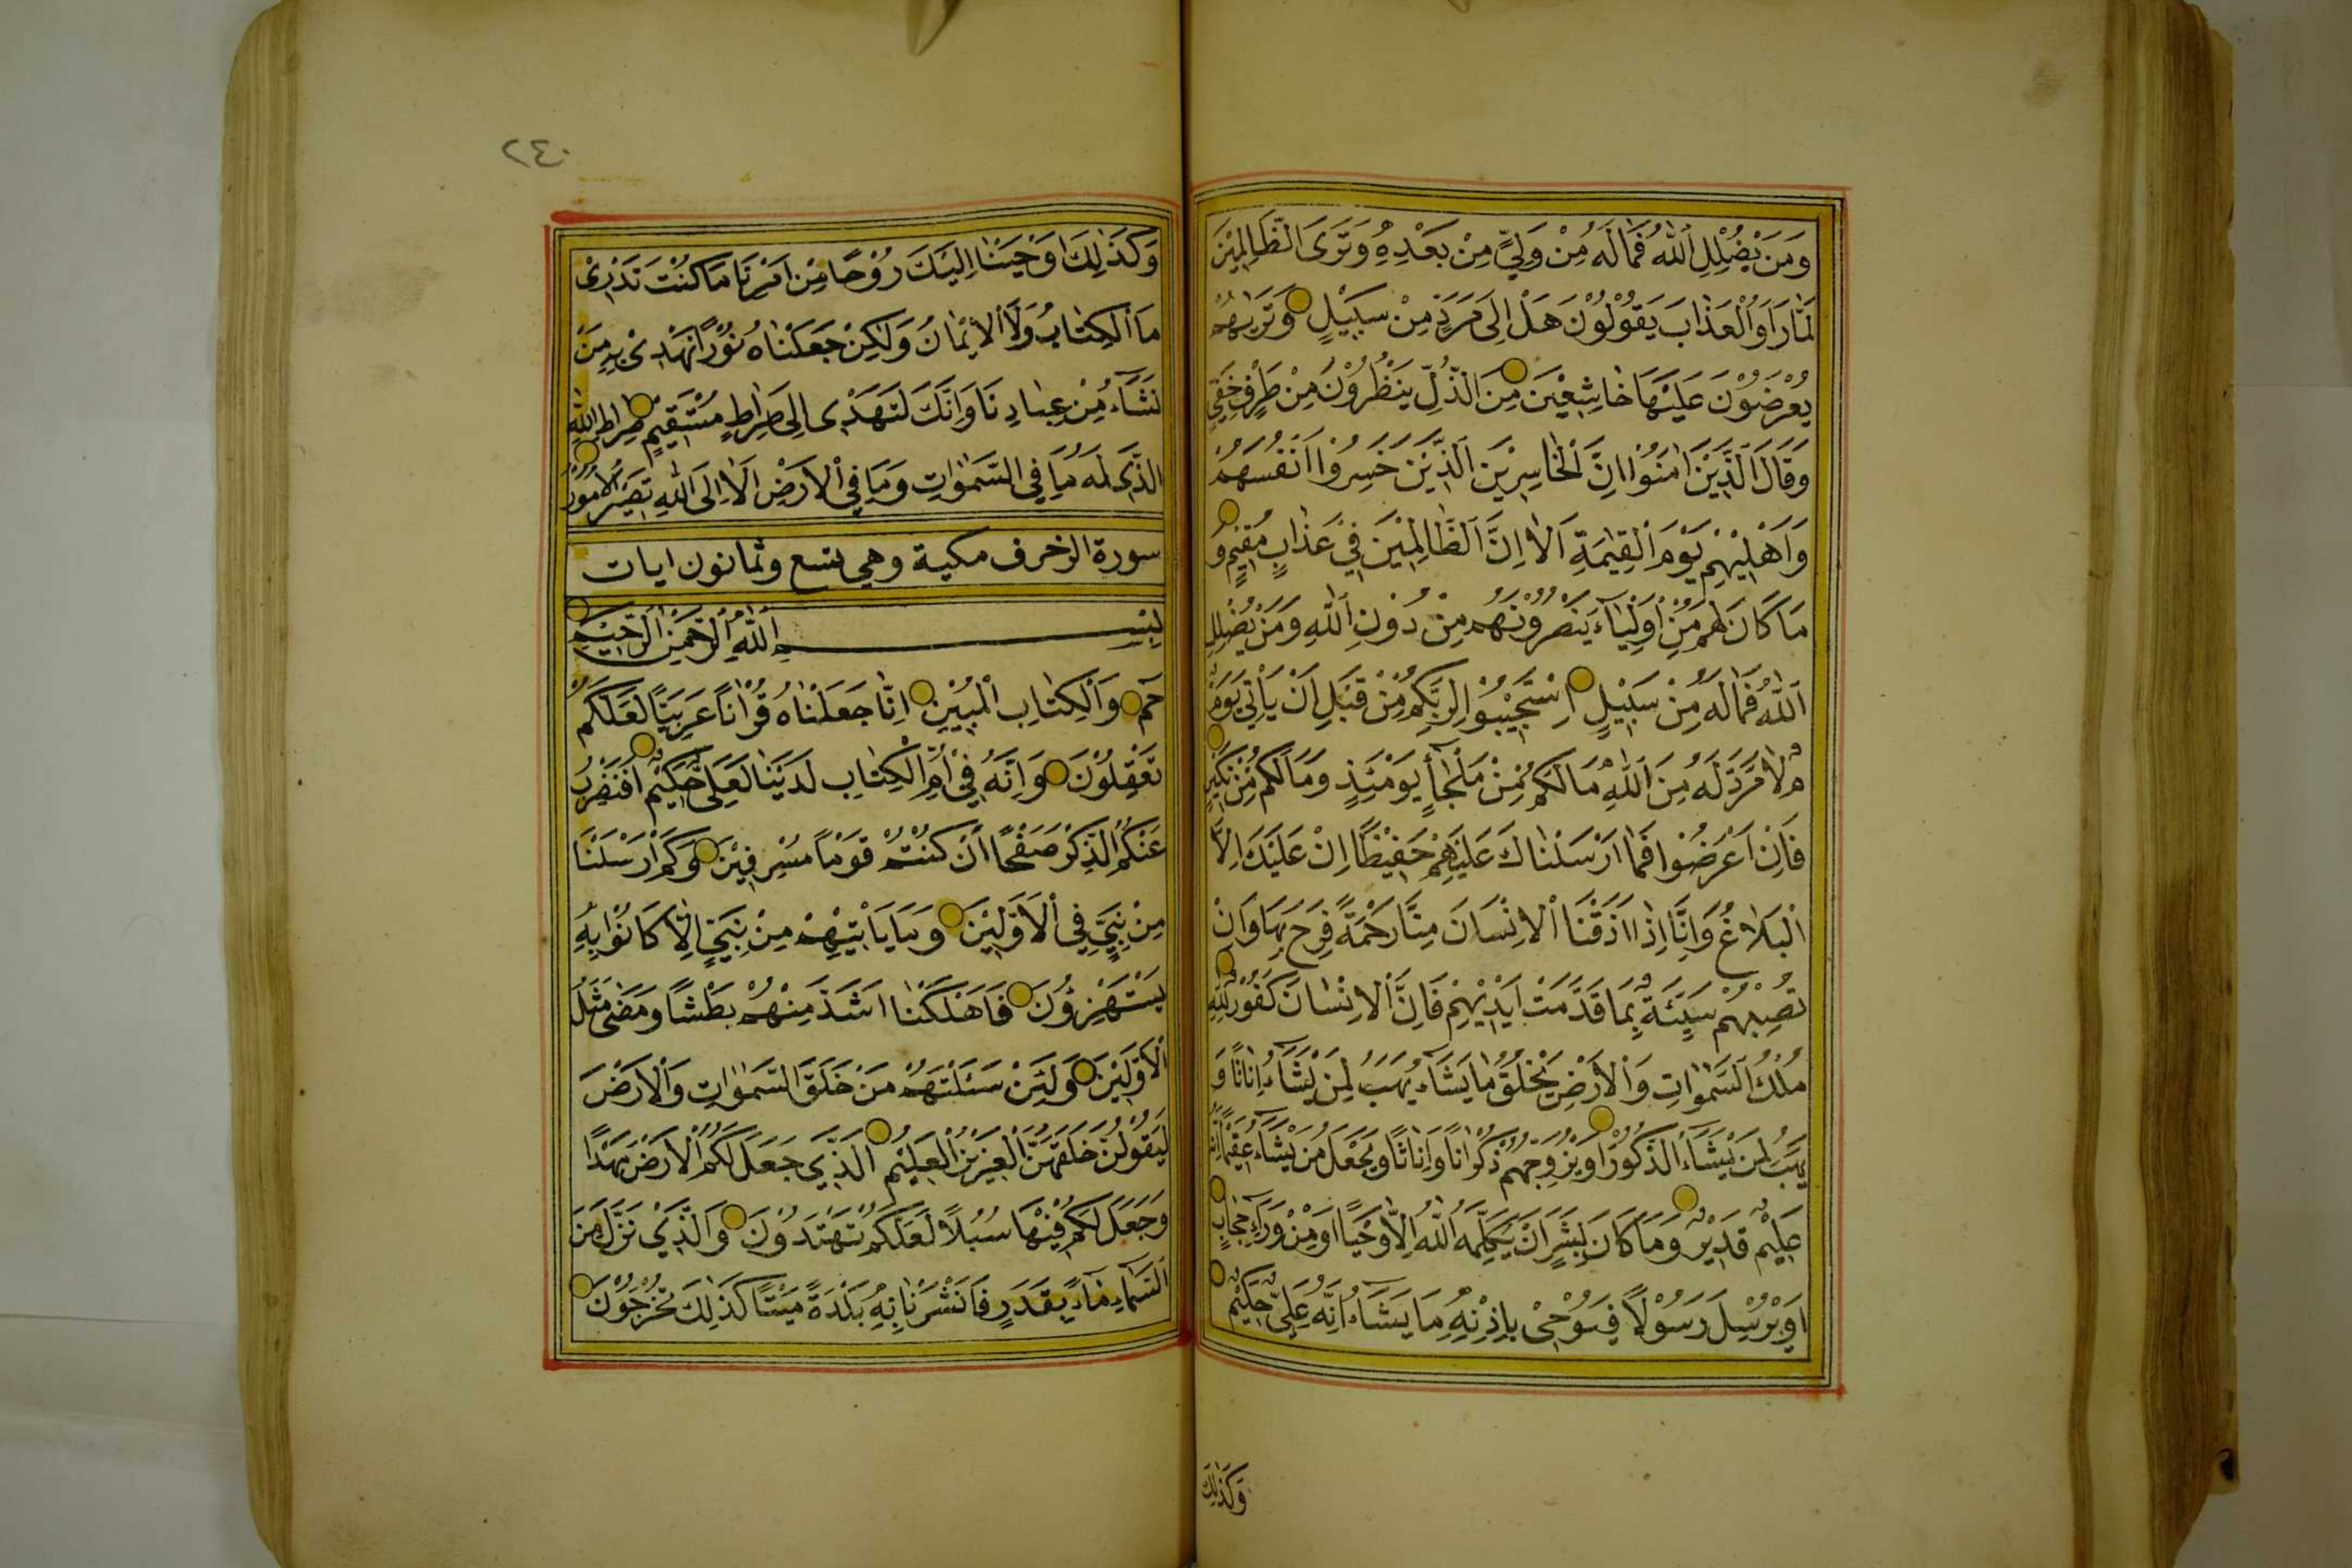 وَمَنْ يُضْلِلِ اللّٰهُ فَمَا لَهُ مِنْ وَلِيٍّ مِنْ بَعْدِهِ وَتَرَى الظَّالِمِيْنَ
لَمَّا رَاَوُا الْعَذَابَ يَقُوْلُوْنَ هَلْ اِلٰى مَرَدٍّ مِنْ سَبِيْلٍ وَتَرٰيهُمْ
يُعْرَضُوْنَ عَلَيْهَا خَاشِعِيْنَ مِنَ الذُّلِّ يَنْظُرُوْنَ مِنْ طَرْفٍ خَفِيٍّ
وَقَالَ الَّذِيْنَ اٰمَنُوْا اِنَّ الْخَاسِرِيْنَ الَّذِيْنَ خَسِرُوْا اَنْفُسَهُمْ
وَاَهْلِيْهِمْ يَوْمَ الْقِيٰمَةِ اَلَا اِنَّ الظَّالِمِيْنَ فِيْ عَذَابٍ مُقِيْمٍ وَ
مَا كَانَ لَهُمْ مِنْ اَوْلِيَآءَ يَنْصُرُوْنَهُمْ مِنْ دُوْنِ اللّٰهِ وَمَنْ يُضْلِلِ
اللّٰهُ فَمَا لَهُ مِنْ سَبِيْلٍ اِسْتَجِيْبُوْا لِرَبِّكُمْ مِنْ قَبْلِ اَنْ يَأْتِيَ يَوْمٌ
لَا مَرَدَّ لَهُ مِنَ اللّٰهِ مَا لَكُمْ مِنْ مَلْجَأٍ يَوْمَئِذٍ وَمَا لَكُمْ مِنْ نَكِيْرٍ
فَاِنْ اَعْرَضُوْا فَمَا اَرْسَلْنَاكَ عَلَيْهِمْ حَفِيْظًا اِنْ عَلَيْكَ اِلَّا
الْبَلَاغُ وَاِنَّا اِذَا اَذَقْنَا الْاِنْسَانَ مِنَّا رَحْمَةً فَرِحَ بِهَا وَاِنْ
تُصِبْهُمْ سَيِّئَةٌ بِمَا قَدَّمَتْ اَيْدِيْهِمْ فَاِنَّ الْاِنْسَانَ كَفُوْرٌ لِلّٰهِ
مُلْكُ السَّمٰوَاتِ وَالْاَرْضِ يَخْلُقُ مَا يَشَآءُ يَهَبُ لِمَنْ يَشَآءُ اِنَاثًا وَ
يَهَبُ لِمَنْ يَشَآءُ الذُّكُوْرَ اَوْ يُزَوِّجُهُمْ ذُكْرَانًا وَاِنَاثًا وَيَجْعَلُ مَنْ يَشَآءُ عَقِيْمًا اِنَّهُ
عَلِيْمٌ قَدِيْرٌ وَمَا كَانَ لِبَشَرٍ اَنْ يُكَلِّمَهُ اللّٰهُ اِلَّا وَحْيًا اَوْ مِنْ وَرَآءِ حِجَابٍ
اَوْ يُرْسِلَ رَسُوْلًا فَيُوْحِيَ بِاِذْنِهِ مَا يَشَآءُ اِنَّهُ عَلِيٌّ حَكِيْمٌ
وَكَذٰلِكَ
٢٤٠
وَكَذٰلِكَ اَوْحَيْنَا اِلَيْكَ رُوْحًا مِنْ اَمْرِنَا مَا كُنْتَ تَدْرِيْ
مَا الْكِتَابُ وَلَا الْاِيْمَانُ وَلٰكِنْ جَعَلْنَاهُ نُوْرًا نَهْدِيْ بِهِ مَنْ
نَشَآءُ مِنْ عِبَادِنَا وَاِنَّكَ لَتَهْدِيْ اِلٰى صِرَاطٍ مُسْتَقِيْمٍ صِرَاطِ اللّٰهِ
الَّذِيْ لَهُ مَا فِي السَّمٰوَاتِ وَمَا فِي الْاَرْضِ اَلَا اِلَى اللّٰهِ تَصِيْرُ الْاُمُوْرُ
سورة الزخرف مكية وهي تسع وثمانون ايات
بِسْمِ اللّٰهِ الرَّحْمٰنِ الرَّحِيْمِ
حٰم وَالْكِتَابِ الْمُبِيْنِ اِنَّا جَعَلْنَاهُ قُرْاٰنًا عَرَبِيًّا لَعَلَّكُمْ
تَعْقِلُوْنَ وَاِنَّهُ فِيْ اُمِّ الْكِتَابِ لَدَيْنَا لَعَلِيٌّ حَكِيْمٌ اَفَنَضْرِبُ
عَنْكُمُ الذِّكْرَ صَفْحًا اَنْ كُنْتُمْ قَوْمًا مُسْرِفِيْنَ وَكَمْ اَرْسَلْنَا
مِنْ نَبِيٍّ فِي الْاَوَّلِيْنَ وَمَا يَأْتِيْهِمْ مِنْ نَبِيٍّ اِلَّا كَانُوْا بِهِ
يَسْتَهْزِؤُنَ فَاَهْلَكْنَا اَشَدَّ مِنْهُمْ بَطْشًا وَمَضٰى مَثَلُ
الْاَوَّلِيْنَ وَلَئِنْ سَئَلْتَهُمْ مَنْ خَلَقَ السَّمٰوَاتِ وَالْاَرْضَ
لَيَقُوْلُنَّ خَلَقَهُنَّ الْعَزِيْزُ الْعَلِيْمُ الَّذِيْ جَعَلَ لَكُمُ الْاَرْضَ مَهْدًا
وَجَعَلَ لَكُمْ فِيْهَا سُبُلًا لَعَلَّكُمْ تَهْتَدُوْنَ وَالَّذِيْ نَزَّلَ مِنَ
السَّمَآءِ مَآءً بِقَدَرٍ فَاَنْشَرْنَا بِهِ بَلْدَةً مَيْتًا كَذٰلِكَ تُخْرَجُوْنَ